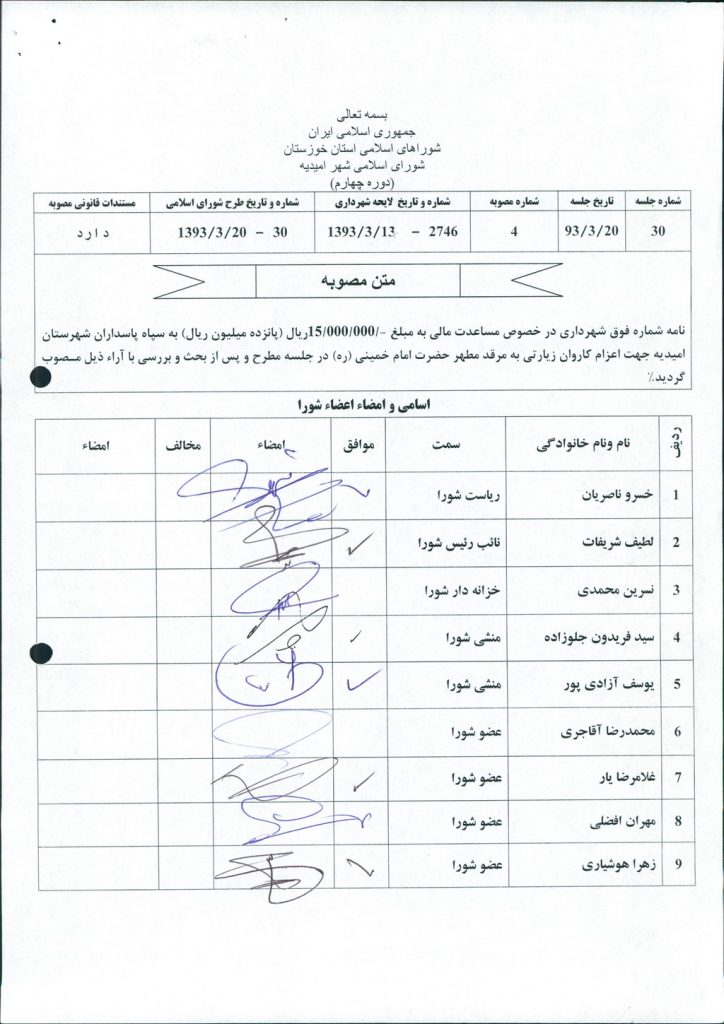 بسمه تعالی
جمهوری اسلامی ایران
شوراهای اسلامی استان خوزستان
شورای اسلامی شهر امیدیه
(دوره چهارم)
شماره جلسه تاریخ جلسه شماره مصوبه شماره و تاریخ لایحه شهرداری شماره و تاریخ طرح شورای اسلامی مستندات قانونی مصوبه
30 93/3/20 4 2746 - 1393/3/13 30 - 1393/3/20 دارد
متن مصوبه
نامه شماره فوق شهرداری در خصوص مساعدت مالی به مبلغ -/15/000/000ریال (پانزده میلیون ریال) به سپاه پاسداران شهرستان
امیدیه جهت اعزام کاروان زیارتی به مرقد مطهر حضرت امام خمینی (ره) در جلسه مطرح و پس از بحث و بررسی با آراء ذیل مـصوب
گردید.٪
اسامی و امضاء اعضاء شورا
ردیف نام ونام خانوادگی سمت موافق امضاء مخالف امضاء
1 خسرو ناصریان ریاست شورا
2 لطیف شریفات نائب رئیس شورا
3 نسرین محمدی خزانه دار شورا
4 سید فریدون جلوزاده منشی شورا
5 یوسف آزادی پور منشی شورا
6 محمدرضا آقاجری عضو شورا
7 غلامرضا یار عضو شورا
8 مهران افضلی عضو شورا
9 زهرا هوشیاری عضو شورا